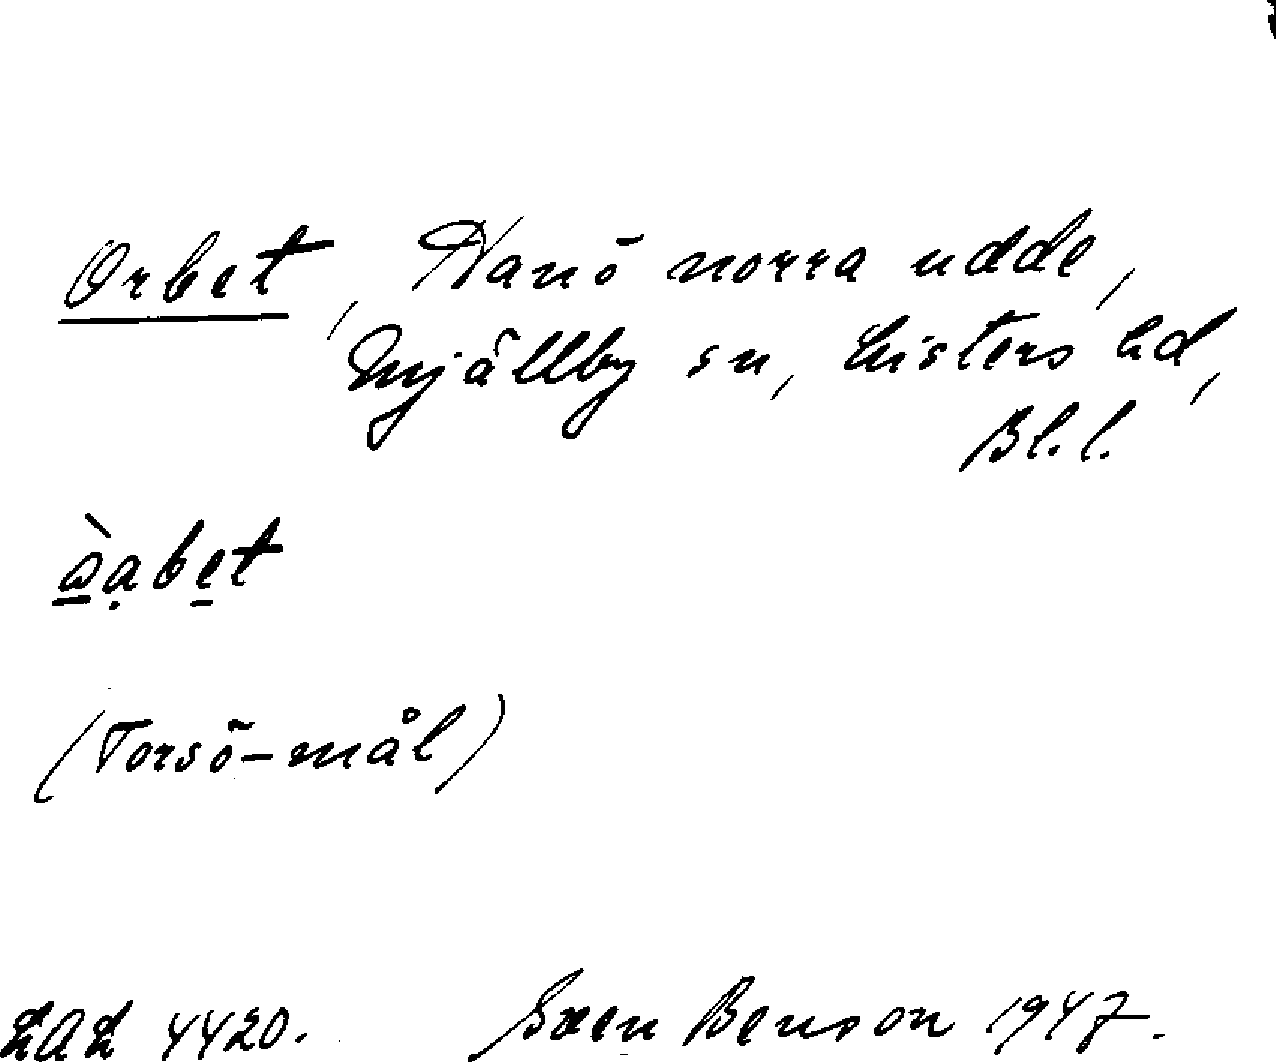 Orbet, Hanö norra udde,
Mjällby sn, Listers hd,
Bl. l.
ɷ̠̀ạbe̠t
(Torsö-mål)
LAL 4420. Sven Benson 1947.